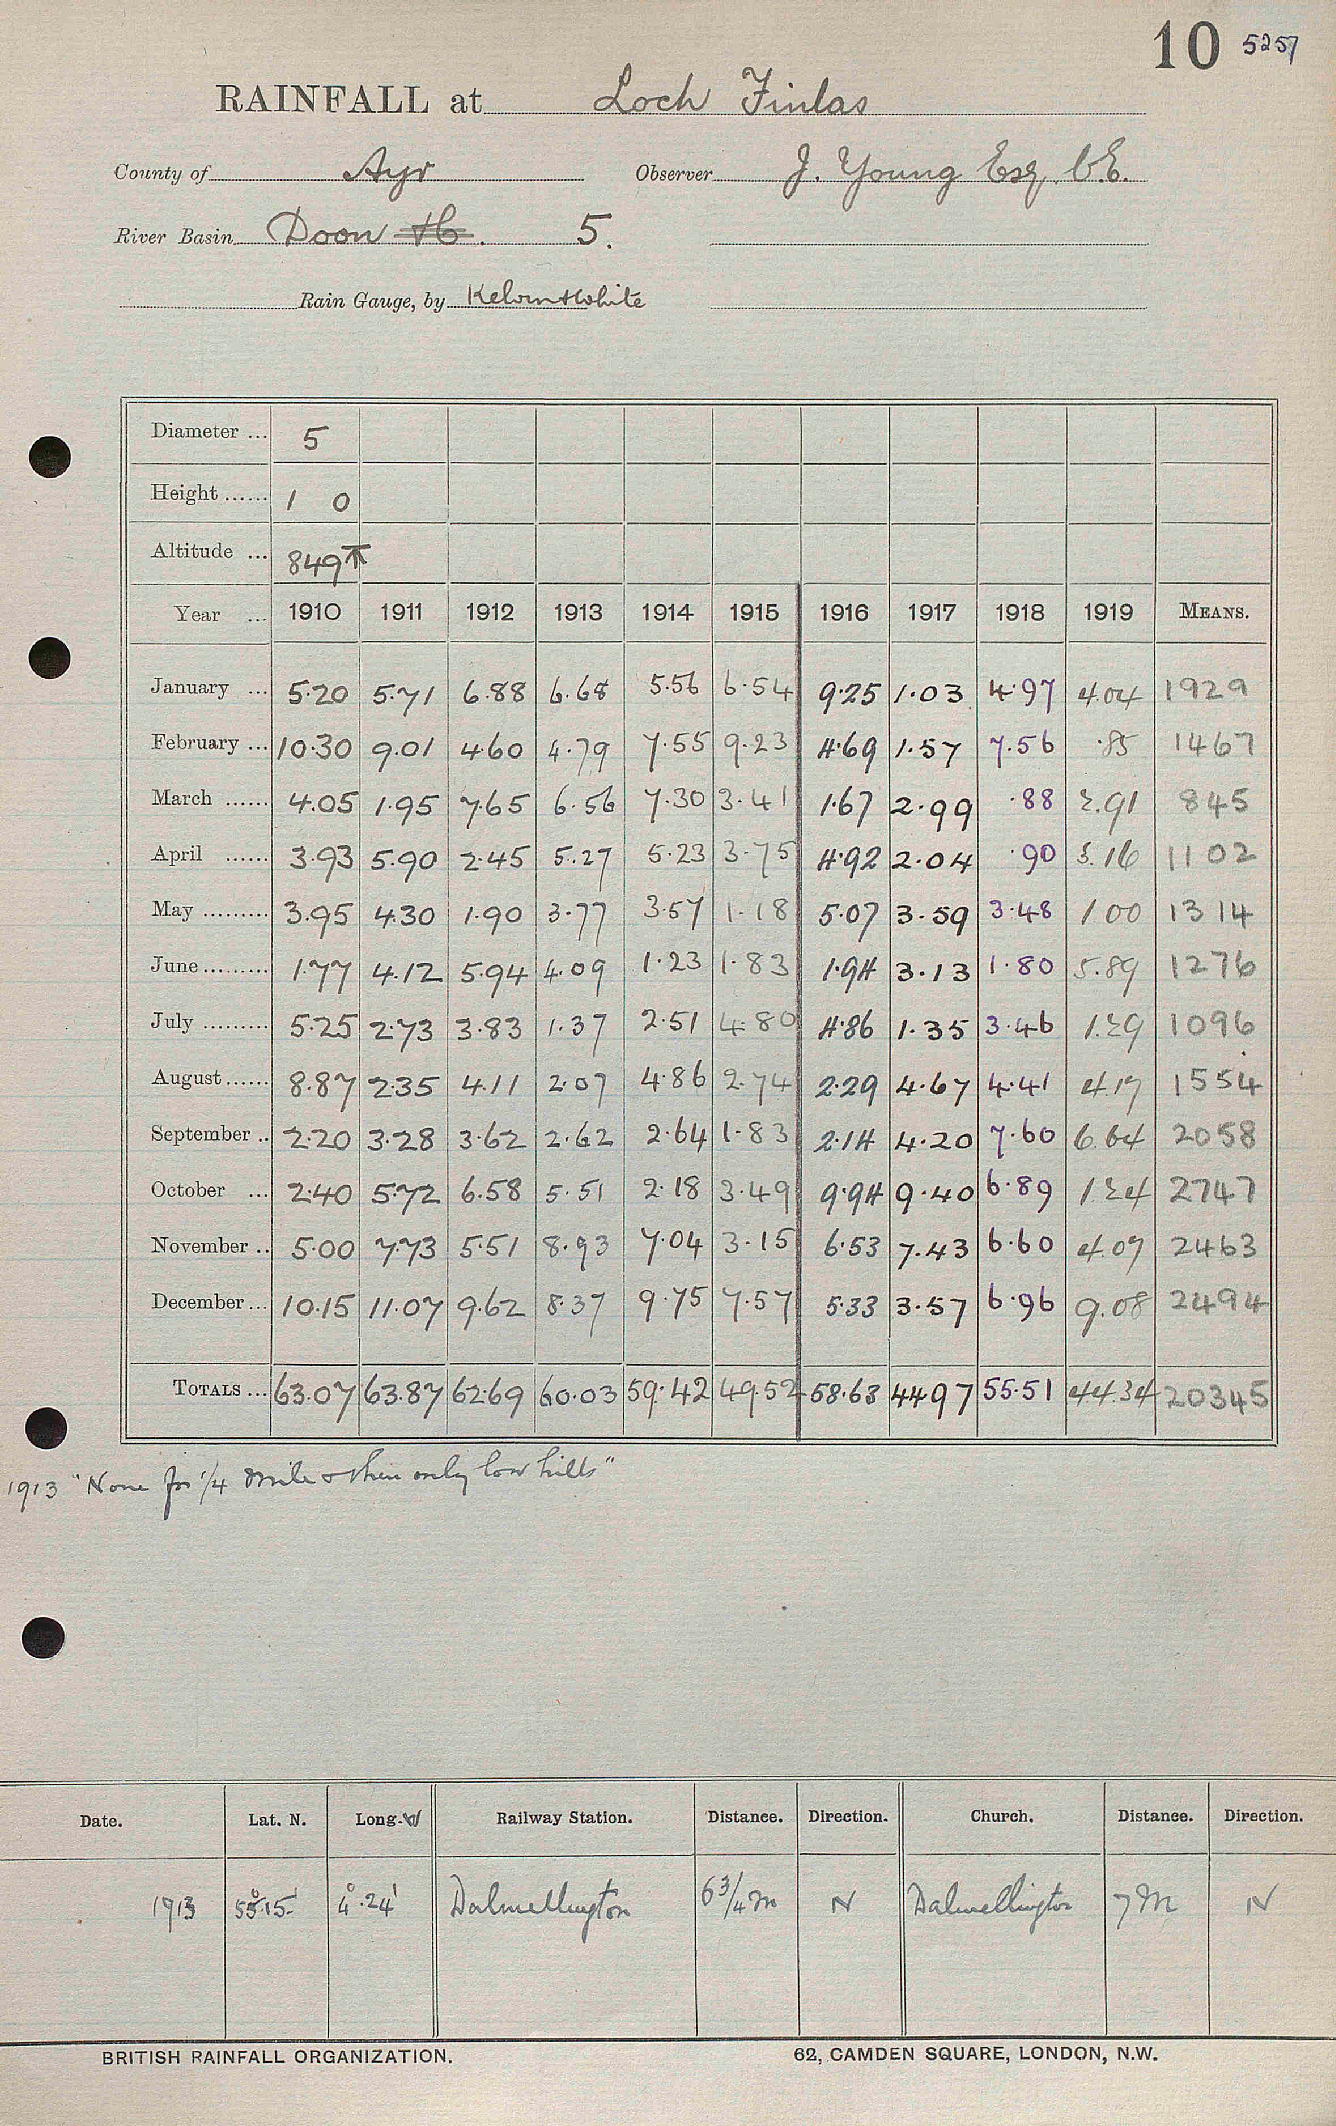 10 5257
RAINFALL at Loch Finlas
County of Ayr Observer J. Young Esq. C.E.
River Basin Doon 5.
Rain Gauge, by Kelvin & White
Diameter ... 5
Height ...... 1 0
Altitude ... 849
Year ... 1910 1911 1912 1913 1914 1915 1916 1917 1918 1919 MEANS.
January ... 5.20 5.71 6.88 6.68 5.56 6.54 9.25 1.03 4.97 4.04 1929
February ... 10.30 9.01 4.60 4.79 7.55 9.23 4.69 1.57 7.56 .85 1467
March ...... 4.05 1.95 7.65 6.56 7.30 3.41 1.67 2.99 .88 2.91 845
April ...... 3.93 5.90 2.45 5.27 5.23 3.75 4.92 2.04 .90 3.16 1102
May ......... 3.95 4.30 1.90 3.77 3.57 1.18 5.07 3.59 3.48 1.00 1314
June ......... 1.77 4.12 5.94 4.09 1.23 1.83 1.94 3.13 1.80 5.89 1276
July ......... 5.25 2.73 3.83 1.37 2.51 4.80 4.86 1.35 3.46 1.29 1096
August ...... 8.87 2.35 4.11 2.07 4.86 2.74 2.29 4.67 4.41 4.17 1554
September .. 2.20 3.28 3.62 2.62 2.64 1.83 2.14 4.20 7.60 6.64 2058
October ... 2.40 5.72 6.58 5.51 2.18 3.49 9.94 9.40 6.89 1.24 2747
November .. 5.00 7.73 5.51 8.93 7.04 3.15 6.53 7.43 6.60 4.07 2463
December ... 10.15 11.07 9.62 8.37 9.75 7.57 5.33 3.57 6.96 9.08 2494
TOTALS ... 63.07 63.87 62.69 60.03 59.42 49.52 58.63 44.97 55.51 44.34 20345
1913 "None for 1/4 mile & then only low hills"
Date. Lat. N. Long. W Railway Station. Distance. Direction. Church. Distance. Direction.
1913 55°.15' 4°.24' Dalmellington 6 3/4 m N Dalmellington 7 m N
BRITISH RAINFALL ORGANIZATION. 62, CAMDEN SQUARE, LONDON, N.W.